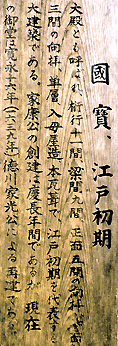 國寶、江戸初期
大殿とも呼ばれ、桁行十一間、梁間九間、正面五間の向拝、背面
三間の向拝、單層、入母屋造、本瓦葺で、江戸初期を代表する
大建築である。家康公の創建は慶長年間であるが、現在
の御堂は寛永十六年(一六三九年)徳川家光公による再建であ